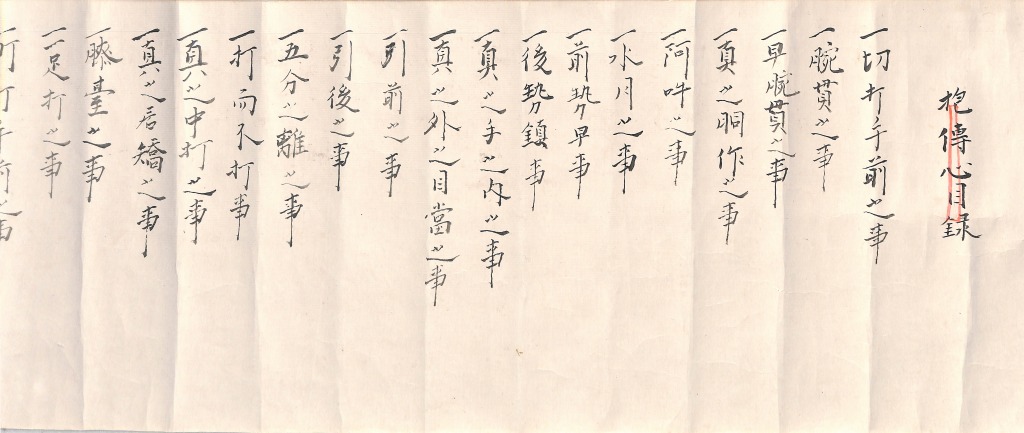 抱傳心目録
一切打手前之事
一腕貫之事
一早腕貫之事
一真之胴作之事
一阿吽之事
一水月之事
一前勢早事
一後勢鎮事
一真之手之内之事
一真之外之目當之事
一引前之事
一引後之事
一五分之離之事
一打而不打事
一真之中打之事
一真之居矯之事
一膝臺之事
一足打之事